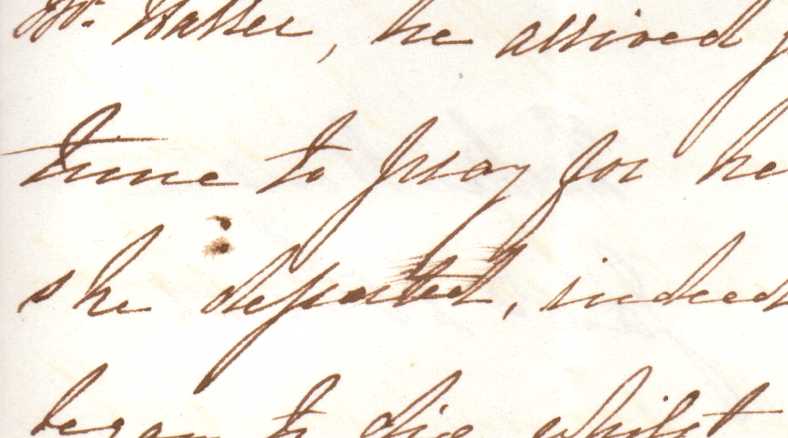 Mr. Walter, he arrived
time to pray for he
she departed, indeed
began to die whilst